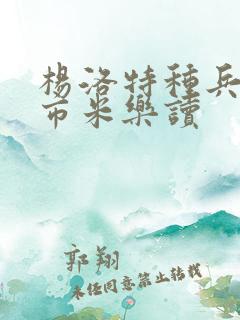 楊洛特種兵
币米樂讀
郭翔
未经同意禁止转载